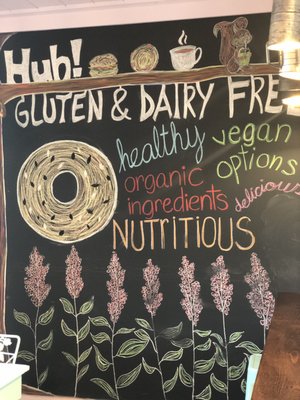 Hub!
GLUTEN & DAIRY FRE
healthy vegan
options
organic
ingredients delicious
NUTRITIOUS